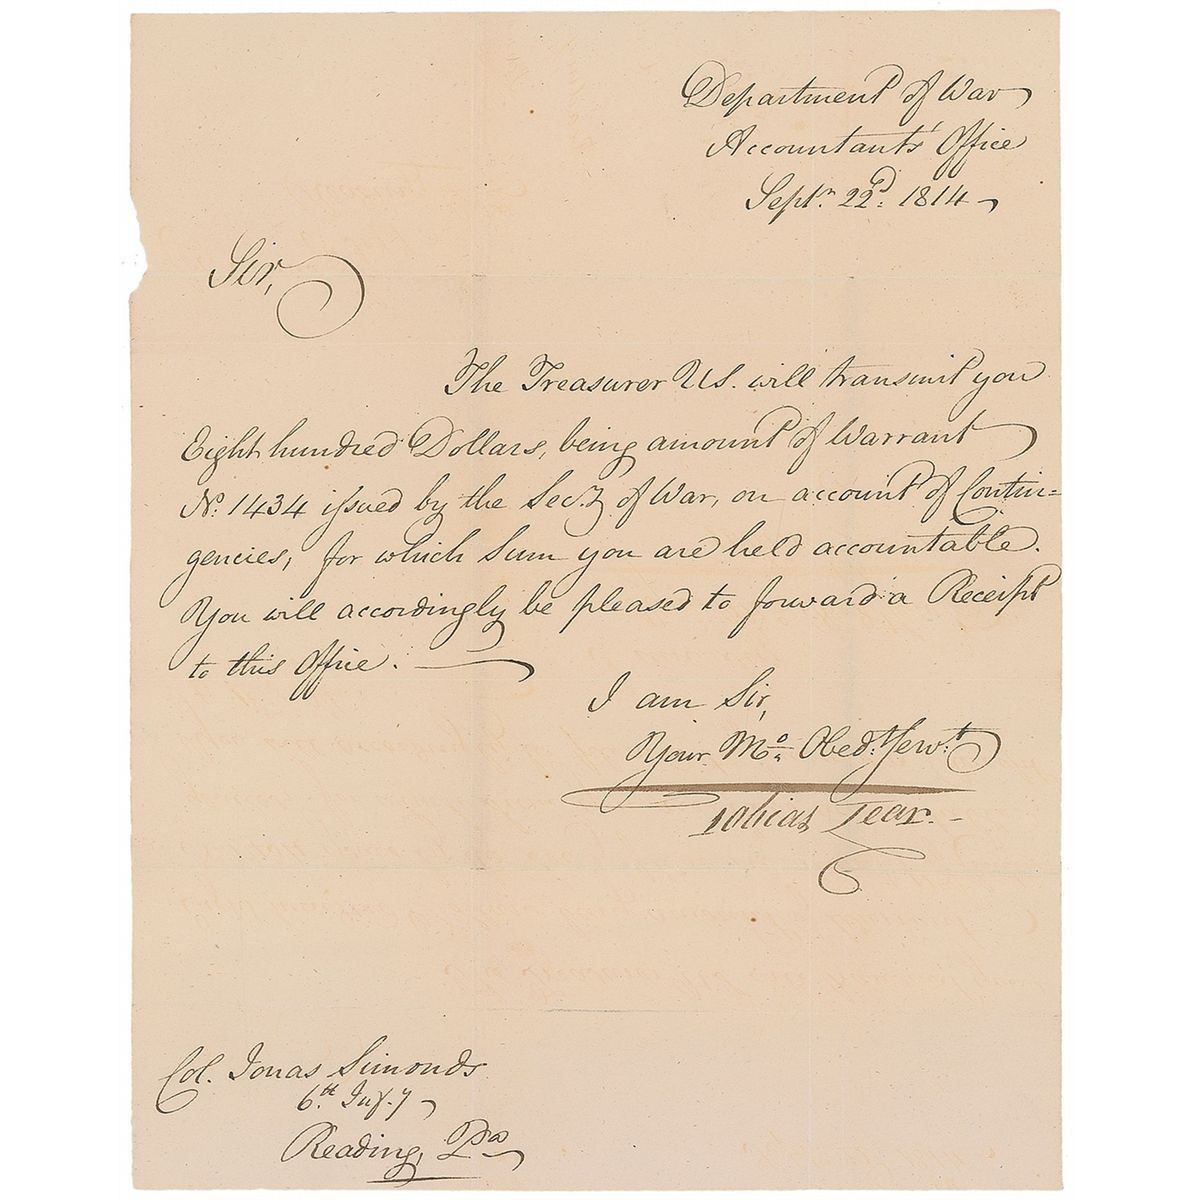 Department of War
Accountants' Office
Septr. 22d. 1814
Sir,
The Treasurer US. will transmit you
Eight hundred Dollars, being amount of Warrant
No. 1434 issued by the Secy. of War, on account of Contin=
gencies, for which sum you are held accountable.
You will accordingly be pleased to forward a Receipt
to this Office.
I am Sir,
Your Mo. Obedt. Servt.
Tobias Lear.
Col. Jonas Simonds
6th. Infy.
Reading, Pa